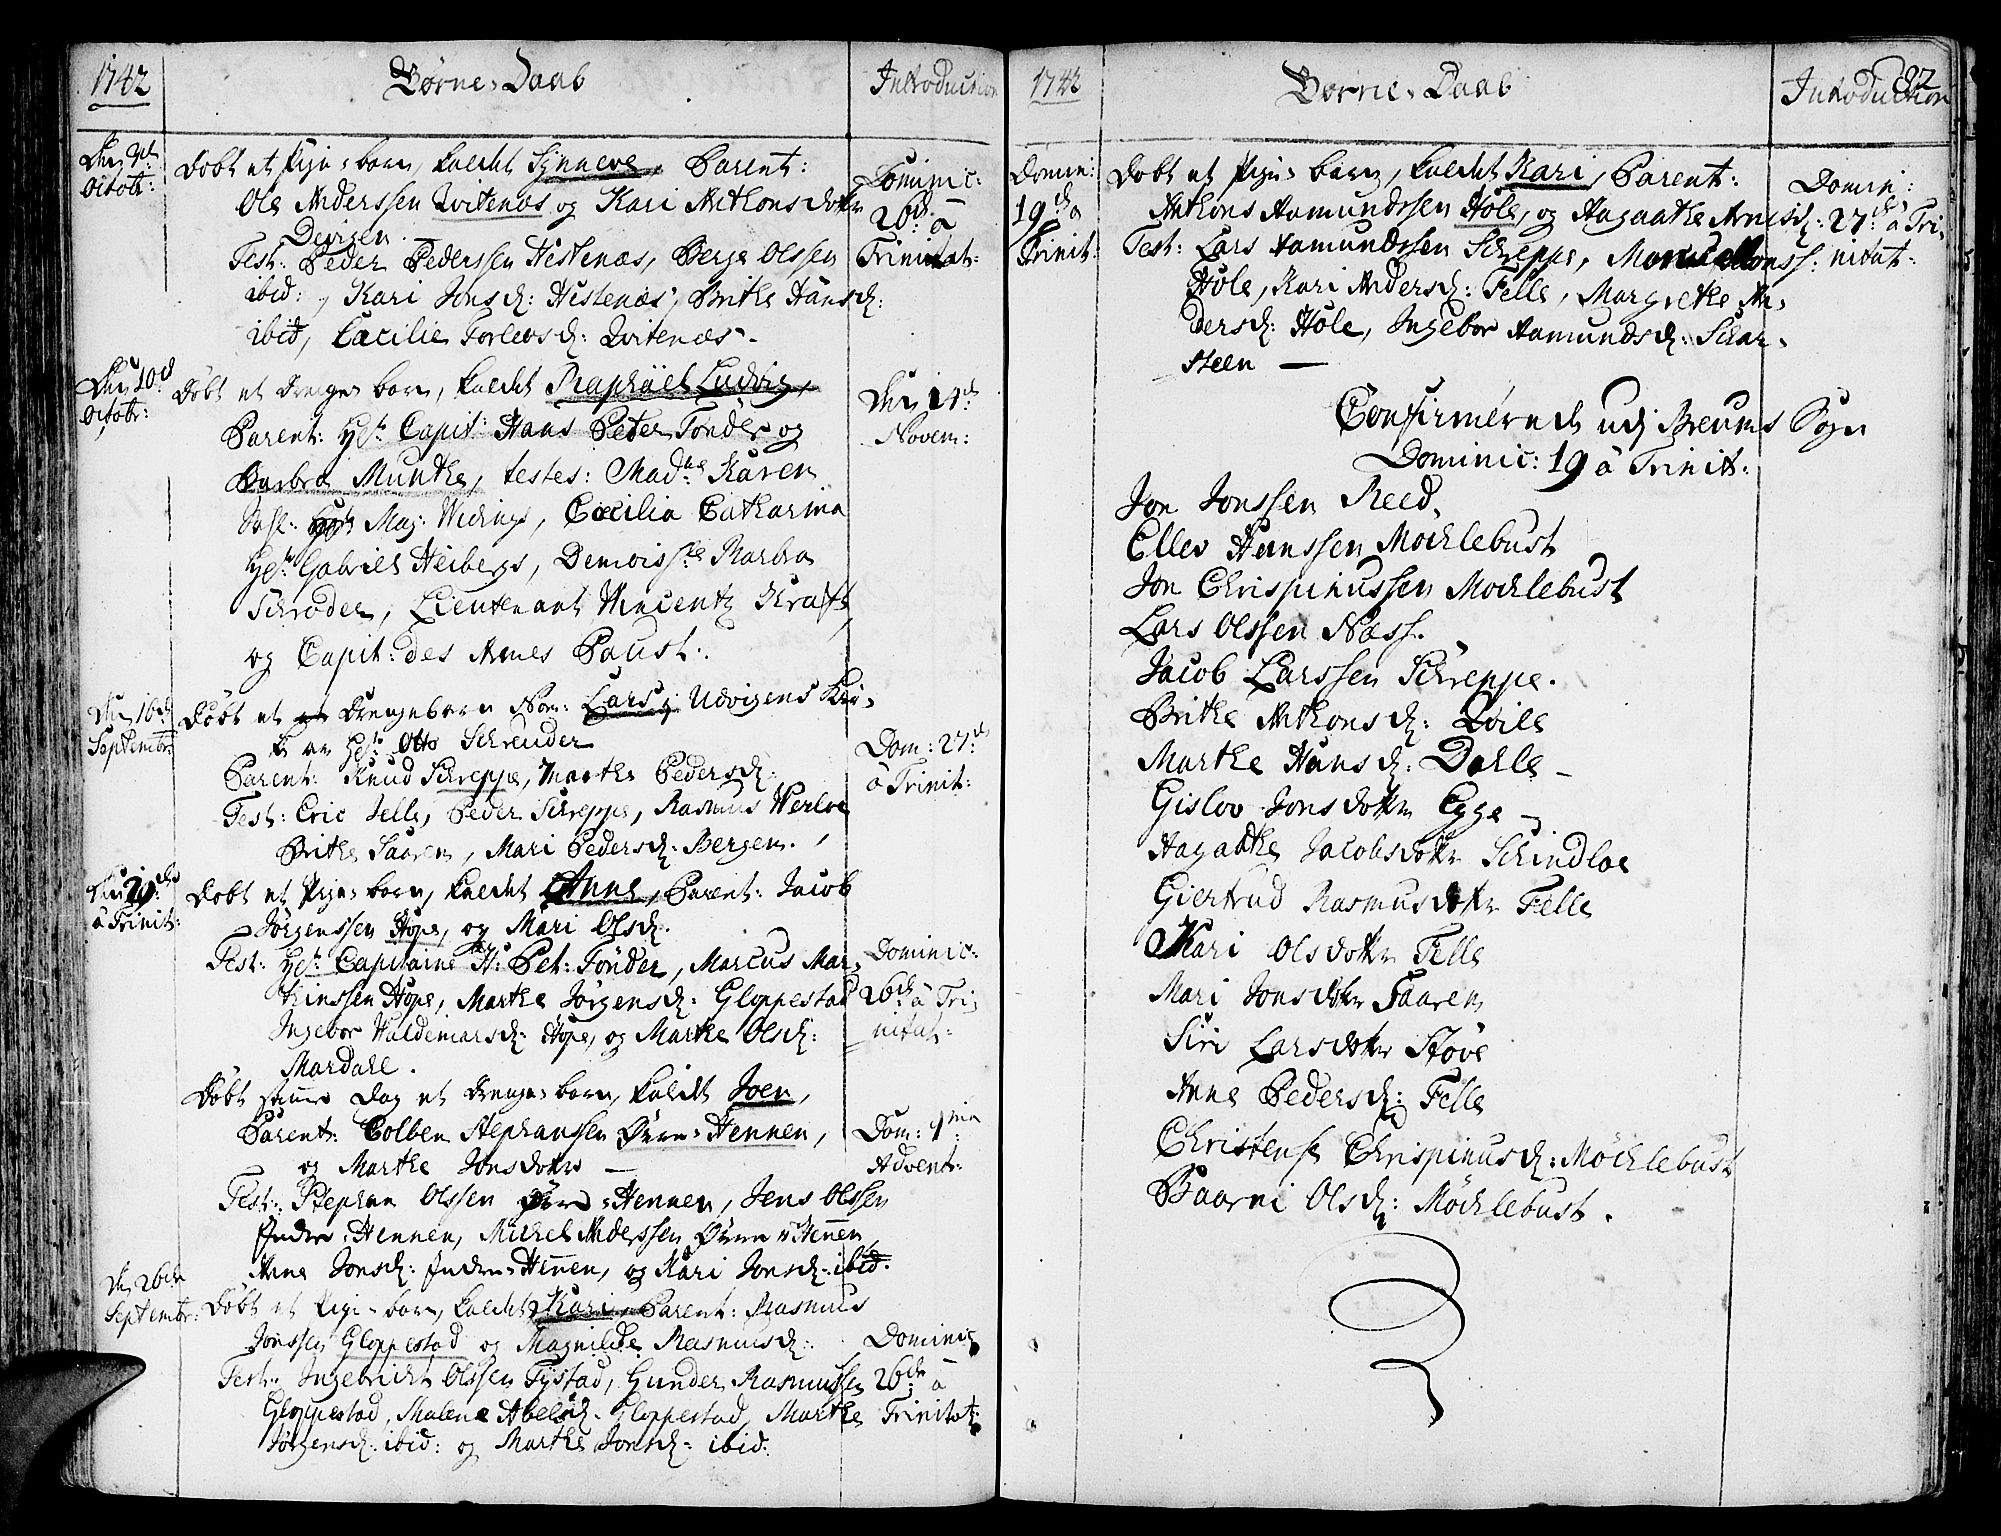 1742
Børne-Daab
Introduction
Den 7de
Octobr:
Døbt et Pige-barn, kaldet Synneve, Parent:
Ole Anderssen Qvitenæs og Kari Anthonsdotr
Devigen.
Test: Peder Pederssen Hestenæs, Berge Olssen
ibid:, Kari Jonsd: Hestenæs, Brithe Hansd:
ibid, Cæcilie Torlevsd: Qvitenæs.
Dominic:
26d: à
Trinitat:
Den 10d
Octobr:
Døbt et Drenge barn, kaldet Raphäel Ludvig,
Parent: Hr. Capit: Hans Peter Tønder og
Barbra Munthe, testes: Madme Karen
Sal: Mag: Widings, Cæcilia Catharina
Hr. Gabriel Heibergs, Demoislle Barbra
Schrøder, Lieutenant Vincentz Kraft,
og Capit: des Armes Paust.
Den 14d:
Novem:
Den 16de
Septembr:
Døbt et Drengebarn Nom: Lars, i Udvigens Kir-
ke av Hr. Otto Schreuder
Parent: Knud Schreppe, Marthe Pedersd:
Test: Eric Felle, Peder Schreppe, Rasmus Verloe
Brithe Saaren, Mari Pedersd: Bergem.
Dom: 27de
à Trinit:
Den 20de
à Trinit:
Døbt et Pige barn, kaldet Anne, Parent: Jacob
Jørgenssen Hope, og Mari Olsd:
Test: Hr. Capitaine H: Pet: Tønder, Marcus Mar-
thinssen Hope, Marthe Jørgensd: Gloppestad
Ingebor Valdemarsd: Hope, og Marthe Olsd:
Mardahl.
Dominic:
26de à Tri-
nitat:
Døbt samme Dag et Drenge-barn, kaldet Joen,
Parent: Colben Stephanssen Øvre-Hennen,
og Marthe Jonsdotr —
Test: Stephan Olssen Øvre-Hennen, Jens Olssen
Indre-Hennen, Michel Anderssen Øvre-Hennen
Anne Jonsd: Indre-Hennen, og Kari Jonsd: ibid.
Dom: 1ma
Advent:
Den 26de
Septembr:
Døbt et Pige-barn, kaldet Kari, Parent: Rasmus
Jonssen Gloppestad og Magnilde Rasmusd:
Test: Ingebricht Olssen Tystad, Gunder Rasmussen
Gloppestad, Malene Abelsd: Gloppestad, Marthe
Jørgensd: ibid: og Marthe Jonsd: ibid:
Dominic
26de à
Trinitat:
1742
Børne-Daab
Introduction
22
Domin:
19de à
Trinit:
Døbt et Pige-barn, kaldet Kari, Parent:
Anthons Aamundssen Hole, og Aagaathe Arnesd:
Test: Lars Aamundssen Schreppe, Mons Monss:
Hole, Kari Andersd: Felle, Margrethe An-
dersd: Hole, Ingebor Aamundsd: Schar-
steen —
Domin:
27de à Tri-
nitat:
Confirmerede udj Breums Sogn
Dominic: 19 à Trinit:
Jon Jonssen Reed.
Ellev Hanssen Mochlebust
Jon Chrispinussen Mochlebust
Lars Olssen Næss.
Jacob Larssen Schreppe.
Brithe Anthonsd: Qvile
Marthe Hansd: Dahle –
Gislov Jonsdotr Egge –
Aagathe Jacobsdotr Schindloe
Giertrud Rasmusdotr Felle
Kari Olsdotr Felle
Mari Jonsdotr Saaren
Siri Larsdotr Støve
Anne Pedersd: Felle
Christense Chrispinusd: Möchlebust
Baarni Olsd: Möchlebust.